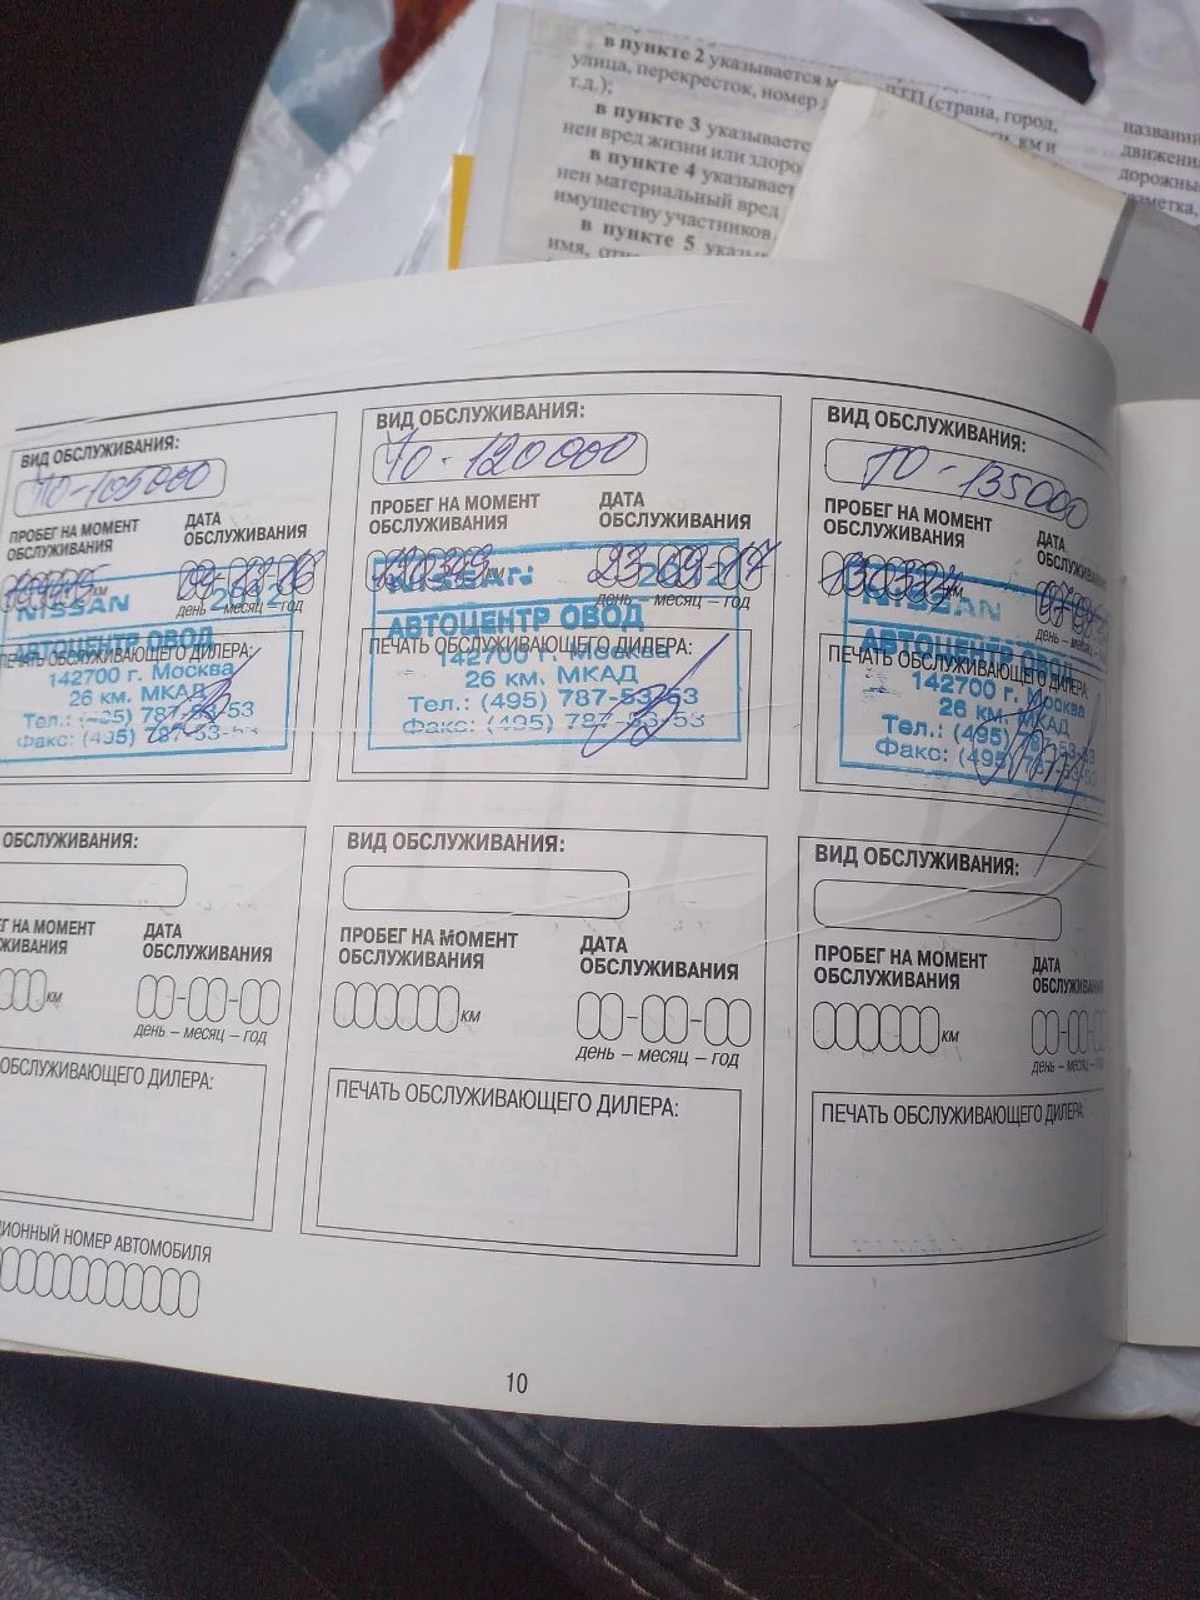 в пункте 2 указывается ДТП (страна, город,
улица, перекресток, номер км и
т.д.);
в пункте 3 указывает
нен вред жизни или здоро
в пункте 4 указывает
нен материальный вред
имуществу участников
в пункте 5 указыв
имя,
названи
движени
дорожны
заметка,
ВИД ОБСЛУЖИВАНИЯ:
ТО-105000
ПРОБЕГ НА МОМЕНТ
ОБСЛУЖИВАНИЯ
км
ДАТА
ОБСЛУЖИВАНИЯ
09-12-16
день – месяц – год
ПЕЧАТЬ ОБСЛУЖИВАЮЩЕГО ДИЛЕРА:
NISSAN 2012
АВТОЦЕНТР ОВОД
142700 г. Москва
26 км. МКАД
Тел.: (495) 787-53-53
Факс: (495) 787-53-53
ВИД ОБСЛУЖИВАНИЯ:
ТО-120000
ПРОБЕГ НА МОМЕНТ
ОБСЛУЖИВАНИЯ
км
ДАТА
ОБСЛУЖИВАНИЯ
23-09-17
день – месяц – год
ПЕЧАТЬ ОБСЛУЖИВАЮЩЕГО ДИЛЕРА:
NISSAN 2012
АВТОЦЕНТР ОВОД
142700 г. Москва
26 км. МКАД
Тел.: (495) 787-53-53
Факс: (495) 787-53-53
ВИД ОБСЛУЖИВАНИЯ:
ТО-135000
ПРОБЕГ НА МОМЕНТ
ОБСЛУЖИВАНИЯ
км
ДАТА
ОБСЛУЖИВАНИЯ
день – месяц
ПЕЧАТЬ ОБСЛУЖИВАЮЩЕГО ДИЛЕРА:
NISSAN
АВТОЦЕНТР ОВОД
142700 г. Москва
26 км. МКАД
Тел.: (495) 787-53-53
Факс: (495) 787-53-53
ОБСЛУЖИВАНИЯ:
ЕГ НА МОМЕНТ
ЖИВАНИЯ
км
ДАТА
ОБСЛУЖИВАНИЯ
день – месяц – год
ОБСЛУЖИВАЮЩЕГО ДИЛЕРА:
ВИД ОБСЛУЖИВАНИЯ:
ПРОБЕГ НА МОМЕНТ
ОБСЛУЖИВАНИЯ
км
ДАТА
ОБСЛУЖИВАНИЯ
день – месяц – год
ПЕЧАТЬ ОБСЛУЖИВАЮЩЕГО ДИЛЕРА:
ВИД ОБСЛУЖИВАНИЯ:
ПРОБЕГ НА МОМЕНТ
ОБСЛУЖИВАНИЯ
км
ДАТА
ОБСЛУЖИВАНИЯ
день – месяц –
ПЕЧАТЬ ОБСЛУЖИВАЮЩЕГО ДИЛЕРА:
ЦИОННЫЙ НОМЕР АВТОМОБИЛЯ
10